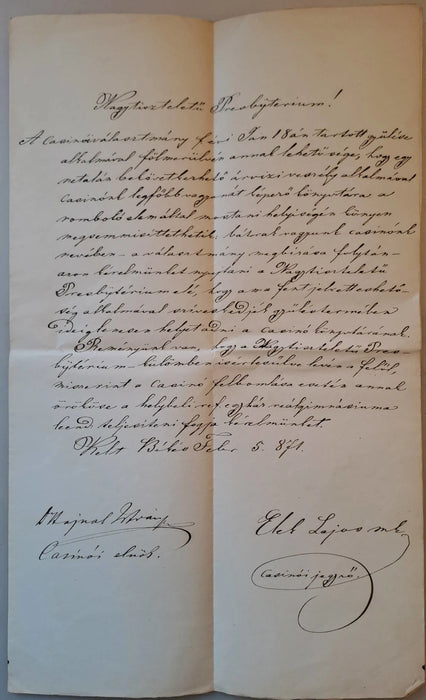 Nagytiszteletű Presbyterium!
A casinói választmány f. évi Jan 18án tartott gyűlése
alkalmával fölmerülvén annak lehetősége, hogy egy
netalán bekövetkezhető árvizi veszély alkalmával
casinónk legfőbb vagyonát képező könyvtára a
romboló elem által mostani helyiségén könnyen
megsemmisíttethetik, bátrak vagyunk casinónk
nevében - a választmány megbizása folytán -
azon kérelmünket nyujtani a Nagytiszteletű
Presbyterium elé, hogy ama fent jelzett eshető-
ség alkalmával sziveskedjék gyűléstermében
ideiglenesen helyt adni a casinó könyvtárának.
Reményünk van, hogy a Nagytiszteletű Pres-
byterium - különben is értesülve lévén a felől
misszerint a casinó felbomlása esetén annak
örököse a helybeli ref. egyház reálgimnásiuma
leend teljesíteni fogja kérelmünket.
Kelt Békés Febr 5. 871.
Dr Hajnal István
Casinói elnök.
Elek Lajos mk.
casinói jegyző.